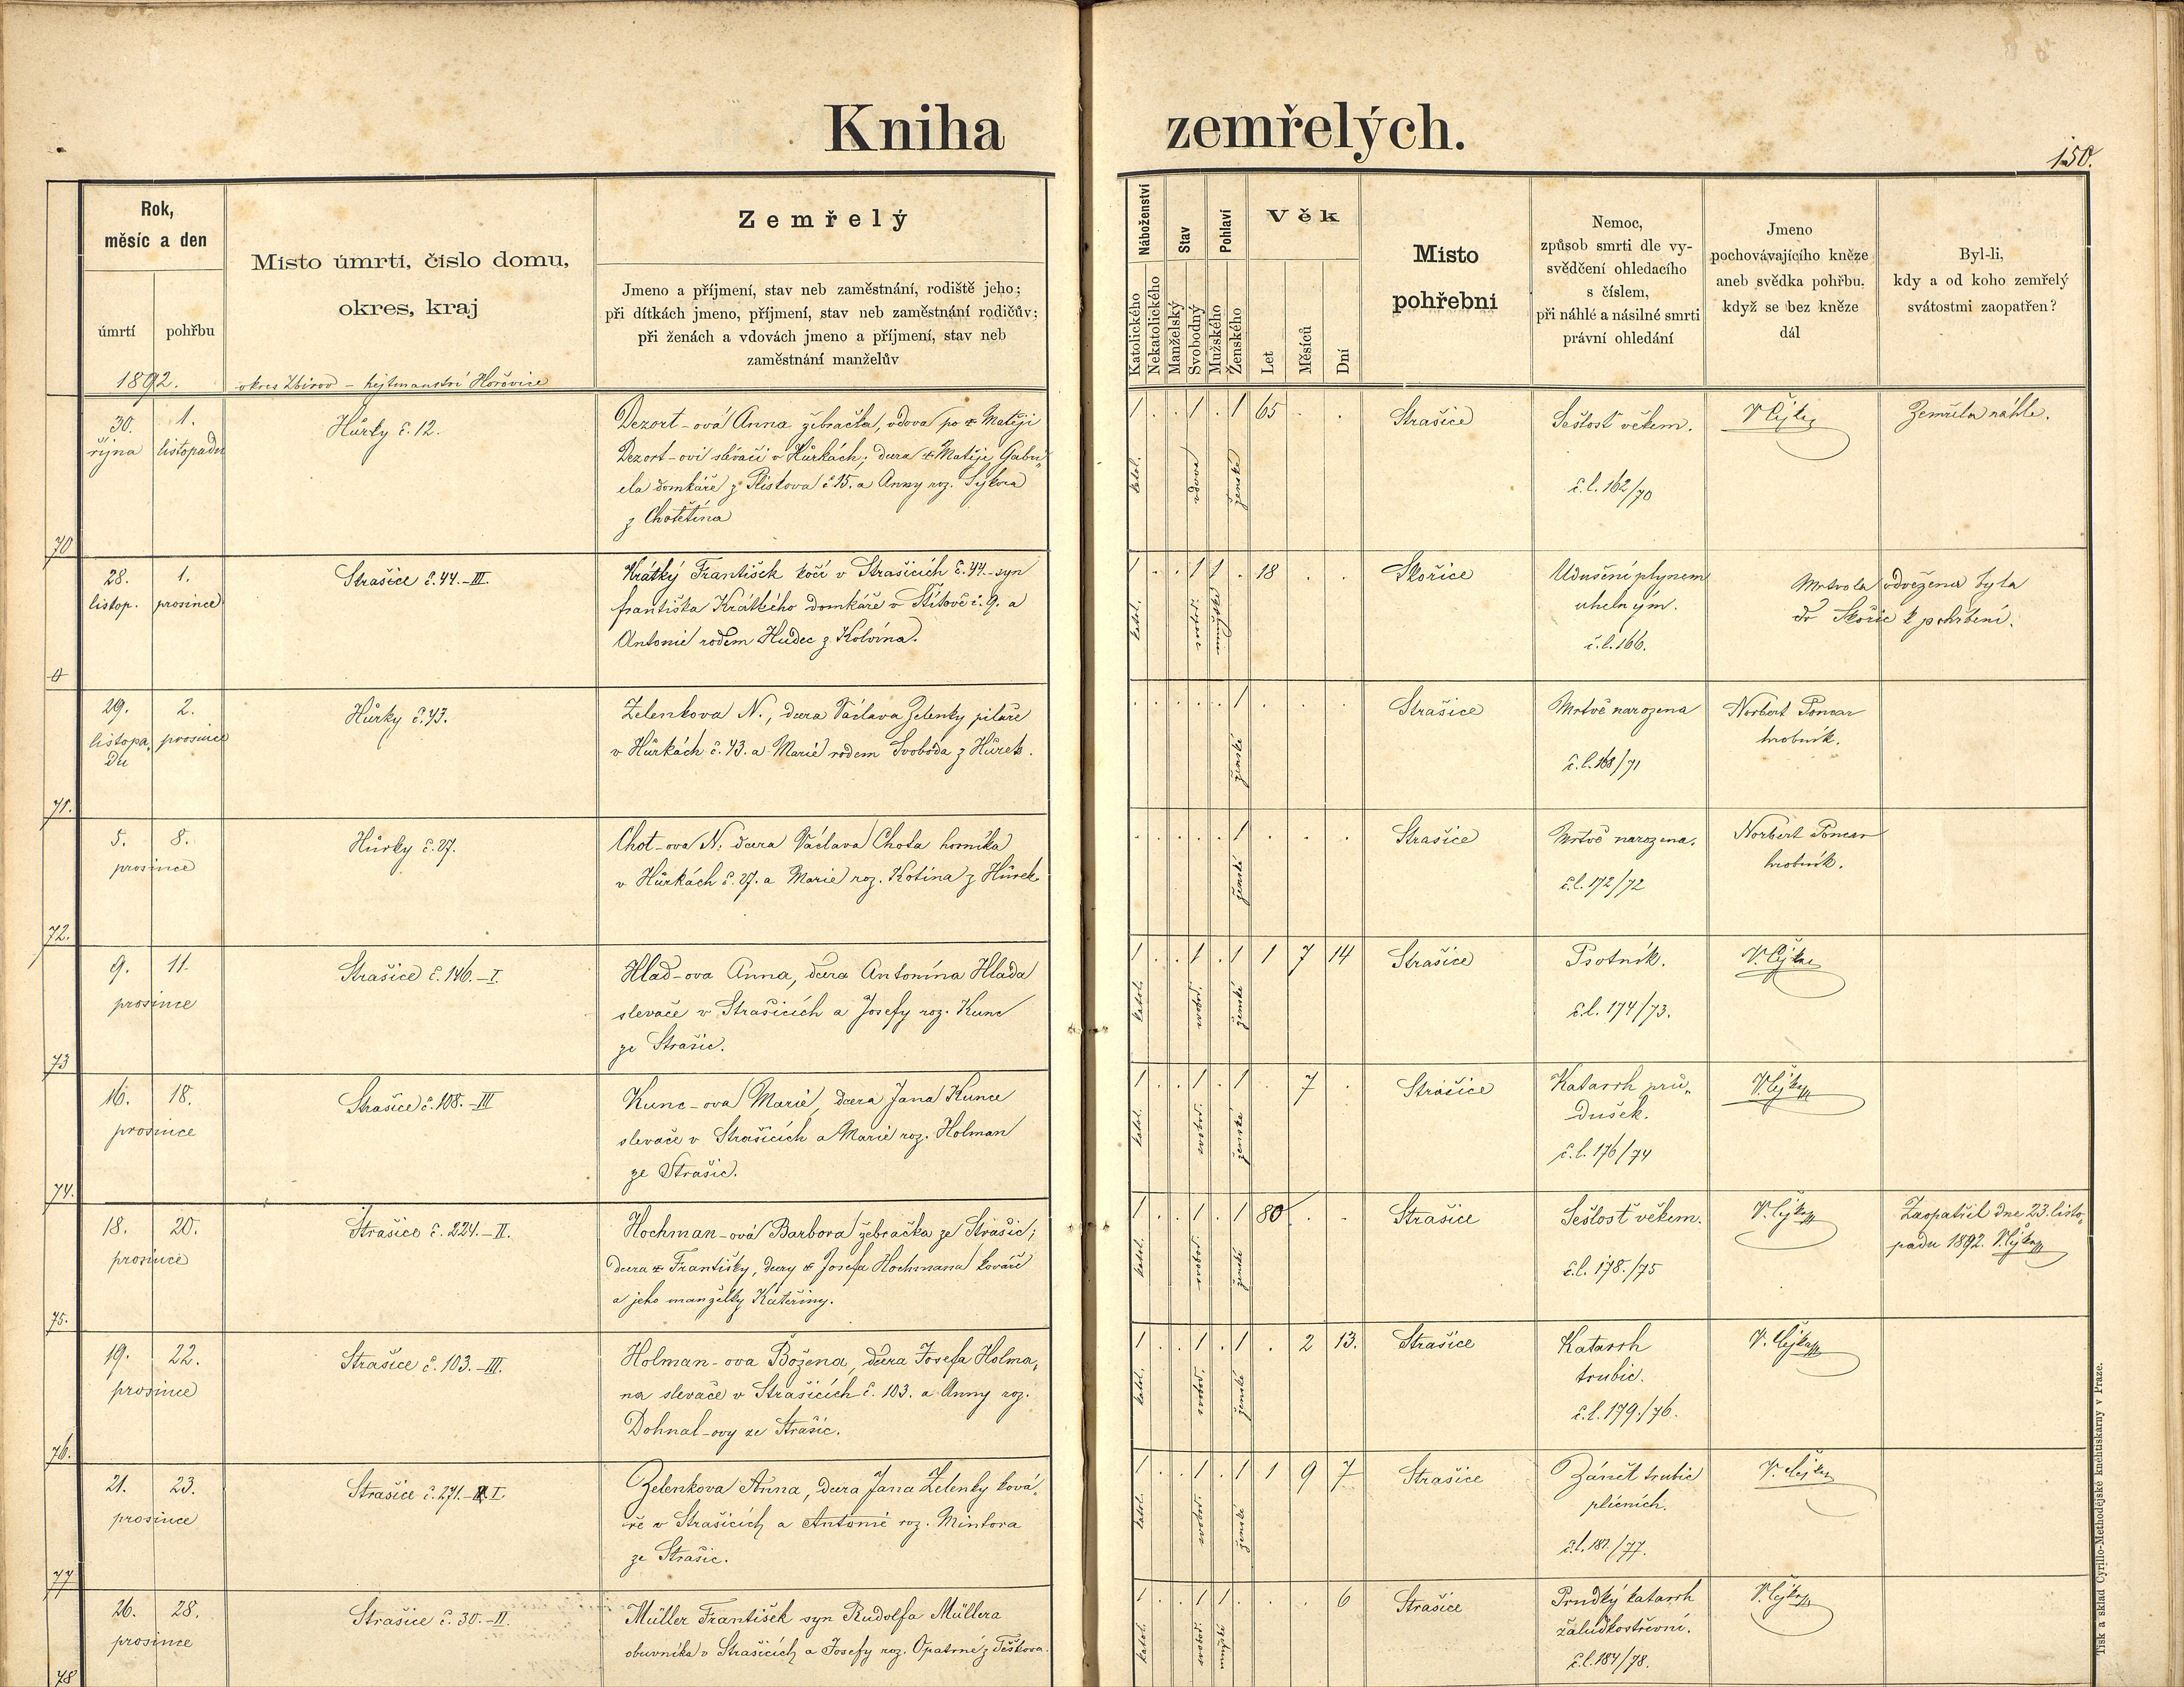 Kniha zemřelých.
150.
Rok,
měsíc a den
úmrtí
pohřbu
1892.
Místo úmrtí, číslo domu,
okres, kraj
okres Zbirov – hejtmanství Hořovice
Zemřelý
Jmeno a příjmení, stav neb zaměstnání, rodiště jeho;
při dítkách jmeno, příjmení, stav neb zaměstnání rodičův;
při ženách a vdovách jmeno a příjmení, stav neb
zaměstnání manželův
Náboženství
Katolického
Nekatolického
Stav
Manželský
Svobodný
Pohlaví
Mužského
Ženského
Věk
Let
Měsíců
Dní
Místo
pohřební
Nemoc,
způsob smrti dle vy-
svědčení ohledacího
s číslem,
při náhlé a násilné smrti
právní ohledání
Jmeno
pochovávajícího kněze
aneb svědka pohřbu,
když se bez kněze
dál
Byl-li,
kdy a od koho zemřelý
svátostmi zaopatřen?
70
30. října
1. listopadu
Hůrky č. 12.
Dezort-ová Anna žebračka, vdova po Matěji
Dezort-ovi slévači v Hůrkách; dcera Matěje Gabri„
ela domkáře z Plískova č 15. a Anny roz. Sýkora
z Chotětína
1 . . 1 . 1 65 . .
katol. vdova ženské
Strašice
Sešlost věkem.
č. l. 162/70
V Čejka
Zemřela náhle.
0
28. listop.
1. prosince
Strašice č. 44.-III.
Krátký František kočí v Strašicích č. 44. syn
františka Krátkého domkáře v Štítově č. 9. a
Antonie rodem Hudec z Kolvína.
1 . . 1 1 . 18 . .
katol. svobod. mužské
Skořice
Udušení plynem
uhelným.
č. l. 166.
Mrtvola odvežena byla
do Skořic k pohřbení.
71.
29. listopa„du
2. prosince
Hůrky č. 43.
Zelenkova N., dcera Václava Zelenky pilaře
v Hůrkách č. 43. a Marie rodem Svoboda z Hůrek.
. . . . . 1 . . .
ženské
Strašice
Mrtvě narozena
č. l. 168/71
Norbert Poncar
hrobník.
72.
5. 8.
prosince
Hůrky č. 27.
Chot-ova N. dcera Václava Chota horníka
v Hůrkách č. 27. a Marie roz. Kotína z Hůrek
. . . . . 1 . . .
ženské
Strašice
Mrtvě narozena.
č. l. 172/72
Norbert Poncar
hrobník.
73
9. 11.
prosince
Strašice č. 146.-I.
Hlad-ova Anna, dcera Antonína Hlada
slevače v Strašicích a Josefy roz. Kunc
ze Strašic.
1 . . 1 . 1 1 7 14
katol. svobod. ženské
Strašice
Psotník.
č. l. 174/73.
V Čejka
74.
16. 18.
prosince
Strašice č. 108.-III
Kunc-ova Marie, dcera Jana Kunce
slevače v Strašicích a Marie roz. Holman
ze Strašic.
1 . . 1 . 1 . 7 .
katol. svobod. ženské
Strašice
Katarrh prů„
dušek.
č. l. 176/74
V. Čejka
75.
18. 20.
prosince
Strašice č. 224.-II.
Hochman-ová Barbora žebračka ze Strašic;
dcera Františky, dcery Josefa Hochmana kováře
a jeho manželky Kateřiny.
1 . . 1 . 1 80 . .
katol. svobod. ženské
Strašice
Sešlost věkem.
č. l. 178./75
V. Čejka
Zaopatřil dne 23. listo„
padu 1892. V. Čejka
76.
19. 22.
prosince
Strašice č. 103.-III.
Holman-ova Božena, dcera Josefa Holma„
na slevače v Strašicích č. 103. a Anny roz.
Dohnal-ovy ze Strašic.
1 . . 1 . 1 . 2 13.
katol. svobod. ženské
Strašice
Katarrh
trubic.
č. l. 179./76.
V. Čejka
77
21. 23.
prosince
Strašice č. 271.-I.
Zelenkova Anna, dcera Jana Zelenky ková„
ře v Strašicích a Antonie roz. Mintora
ze Strašic.
1 . . 1 . 1 1 9 7
katol. svobod. ženské
Strašice
Zánět trubic
plicních.
č. l. 181./77.
V. Čejka
78
26. 28.
prosince
Strašice č. 30.-II.
Müller František syn Rudolfa Müllera
obuvníka v Strašicích a Josefy roz. Opatrné z Těškova.
1 . . 1 1 . . . 6
katol. svobod. mužské
Strašice
Prudký katarrh
žaludkostřevní.
č. l. 184/78.
V. Čejka
Tisk a sklad Cyrillo-Methodějské knihtiskárny v Praze.